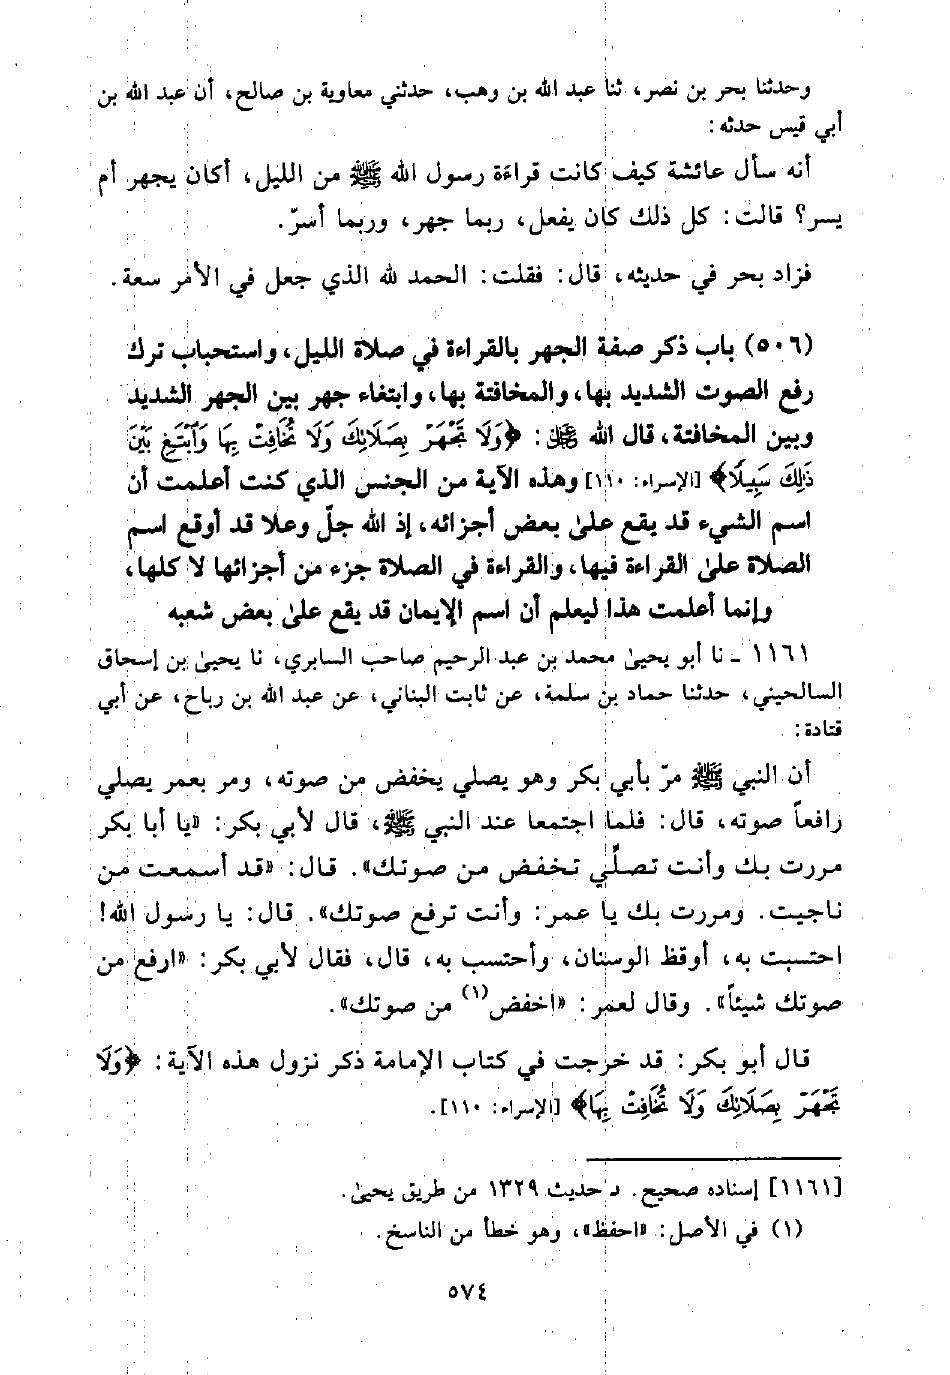 وحدثنا بحر بن نصر، ثنا عبد الله بن وهب، حدثني معاوية بن صالح، أن عبد الله بن
أبي قيس حدثه:
أنه سأل عائشة كيف كانت قراءة رسول الله ﷺ من الليل، أكان يجهر أم
يسر؟ قالت: كل ذلك كان يفعل، ربما جهر، وربما أسرّ.
فزاد بحر في حديثه، قال: فقلت: الحمد لله الذي جعل في الأمر سعة.
(٥٠٦) باب ذكر صفة الجهر بالقراءة في صلاة الليل، واستحباب ترك
رفع الصوت الشديد بها، والمخافتة بها، وابتغاء جهر بين الجهر الشديد
وبين المخافتة، قال الله ﷻ: ﴿وَلَا تَجْهَرْ بِصَلَاتِكَ وَلَا تُخَافِتْ بِهَا وَابْتَغِ بَيْنَ
ذَلِكَ سَبِيلًا﴾ [الإسراء: ١١٠] وهذه الآية من الجنس الذي كنت أعلمت أن
اسم الشيء قد يقع علىٰ بعض أجزائه، إذ الله جلّ وعلا قد أوقع اسم
الصلاة علىٰ القراءة فيها، والقراءة في الصلاة جزء من أجزائها لا كلها،
وإنما أعلمت هذا ليعلم أن اسم الإيمان قد يقع علىٰ بعض شعبه
١١٦١ - نا أبو يحيىٰ محمد بن عبد الرحيم صاحب السابري، نا يحيىٰ بن إسحاق
السالحيني، حدثنا حماد بن سلمة، عن ثابت البناني، عن عبد الله بن رباح، عن أبي
قتادة:
أن النبي ﷺ مرّ بأبي بكر وهو يصلي يخفض من صوته، ومر بعمر يصلي
رافعاً صوته، قال: فلما اجتمعا عند النبي ﷺ، قال لأبي بكر: «يا أبا بكر
مررت بك وأنت تصلّي تخفض من صوتك». قال: «قد أسمعت من
ناجيت. ومررت بك يا عمر: وأنت ترفع صوتك». قال: يا رسول الله!
احتسبت به، أوقظ الوسنان، وأحتسب به، قال، فقال لأبي بكر: «ارفع من
صوتك شيئاً». وقال لعمر: «اخفض(١) من صوتك».
قال أبو بكر: قد خرجت في كتاب الإمامة ذكر نزول هذه الآية: ﴿وَلَا
تَجْهَرْ بِصَلَاتِكَ وَلَا تُخَافِتْ بِهَا﴾ [الإسراء: ١١٠].
[١١٦١] إسناده صحيح. د حديث ١٣٢٩ من طريق يحيىٰ.
(١) في الأصل: «احفظ»، وهو خطأ من الناسخ.
٥٧٤